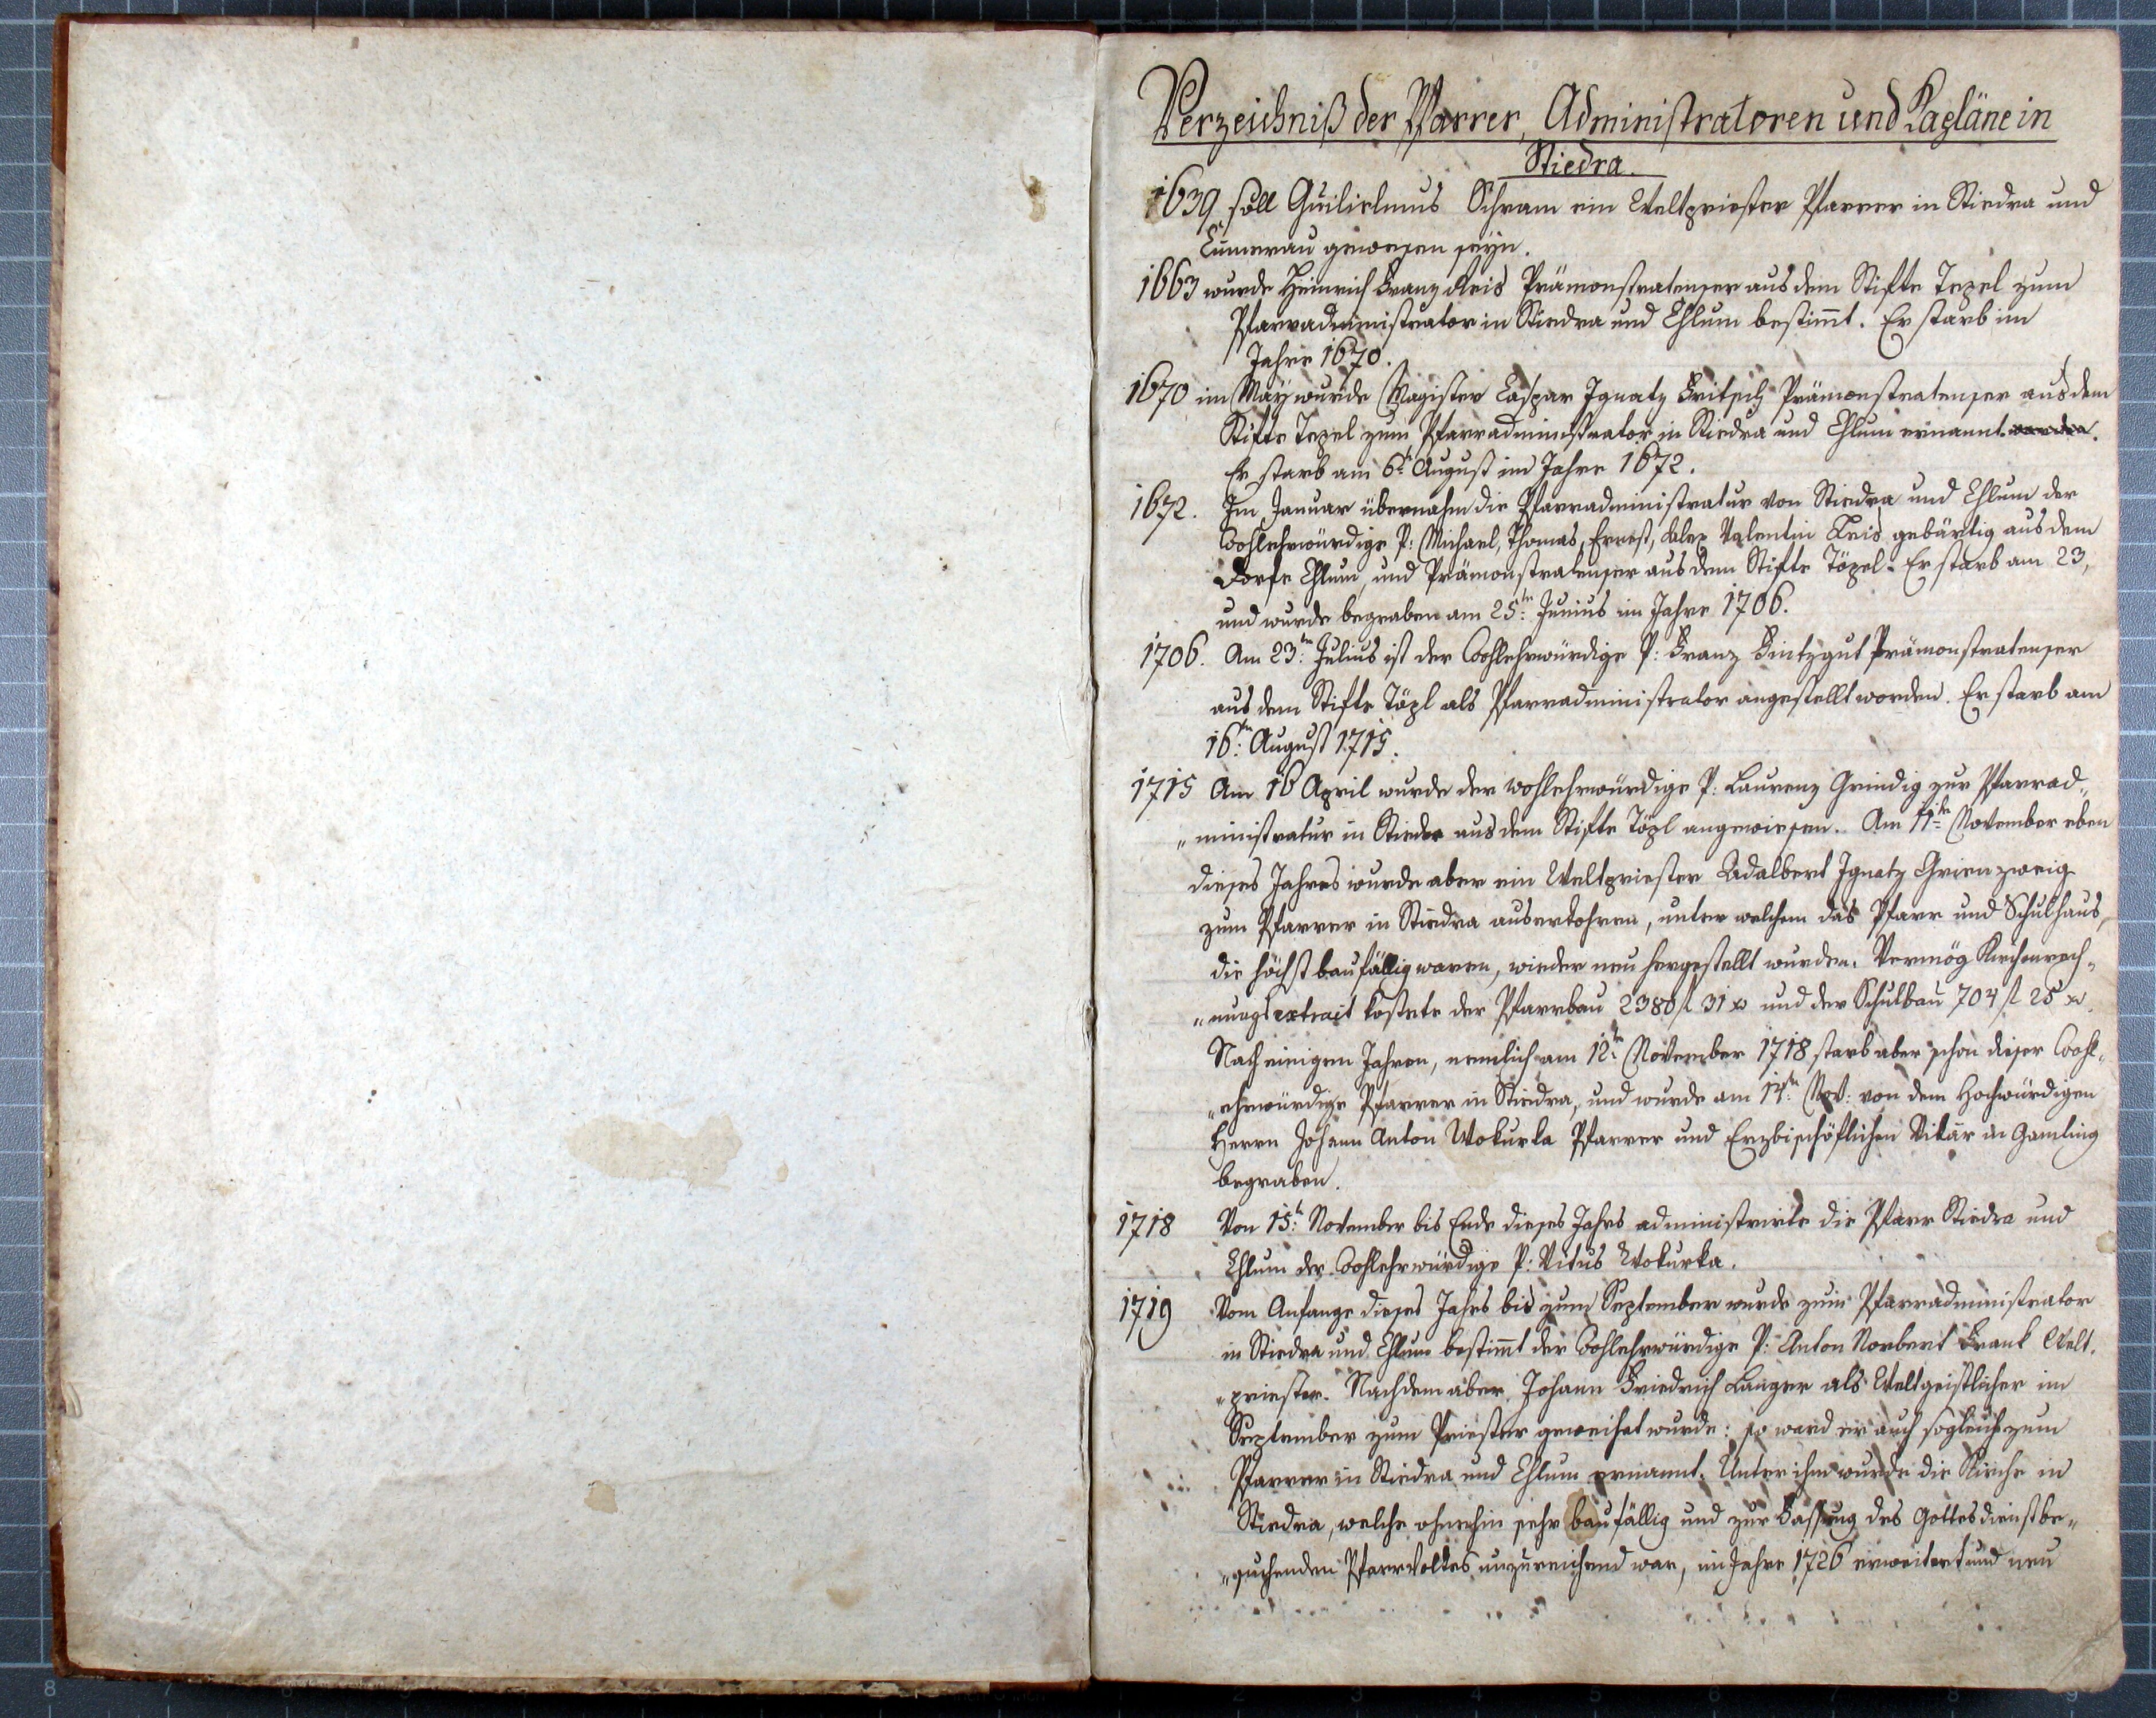 Verzeichniß der Pfarrer, Administratoren und Kapläne in
Stiedra.
1639 soll Guilielmus Schram ein Weltpriester Pfarrer in Stiedra und
Lumerau gewesen seyn.
1663 wurde Heinrich Franz Reis Prämonstratenser aus dem Stifte Tepel zum
Pfarradministrator in Stiedra und Chlum bestimt. Er starb im
Jahre 1670.
1670 im May wurde Magister Caspar Ignatz Fritsch Prämonstratenser aus dem
Stifte Tepel zum Pfarradministrator in Stiedra und Chlum ernannt worden.
Er starb am 6t August im Jahre 1672.
1672. Im Januar übernahm die Pfarradministratur von Stiedra und Chlum der
Wohlehrwürdige P: Michael, Thomas, Ernest, Alex Valentin Reis gebürtig aus dem
Dorfe Chlum, und Prämonstratenser aus dem Stifte Töpel. Er starb am 23,
und wurde begraben am 25tn Junius im Jahre 1706.
1706. Am 23:tn Julius ist der Wohlehrwürdige P: Franz Fintzgut Prämonstratenser
aus dem Stifte Töpl als Pfarradministrator angestellt worden. Er starb am
16:tn August 1715.
1715 Am 16 April wurde der wohlehrwürdige P: Laurenz Grindig zur Pfarrad„
„ministratur in Stiedra aus dem Stifte Töpl angewiesen. Am 11tn November eben
dieses Jahres wurde aber ein Weltpriester Adalbert Ignatz Grienzweig
zum Pfarrer in Stiedra auserkohren, unter welchem das Pfarr und Schulhaus,
die höchst baufällig waren, wieder neu hergestellt wurden. Vermög Kirchenrech„
„nungsextrait kostete der Pfarrbau 2380 fl 31 xr und der Schulbau 704 fl 25 xr.
Nach einigen Jahren, nemlich am 12tn November 1718 starb aber schon dieser Wohl„
„ehrwürdige Pfarrer in Stiedra, und wurde am 14:tn Nov: von dem Hochwürdigen
Herrn Johann Anton Wokurka Pfarrer und Erzbischöflichen Vikär in Gamling
begraben.
1718 Von 15:t November bis Ende dieses Jahrs administrirte die Pfarr Stiedra und
Chlum der Wohlehrwürdige P: Vitus Wokurka.
1719 Vom Anfange dieses Jahrs bis zum September wurde zum Pfarradministrator
in Stiedra und Chlum bestimt der Wohlehrwürdige P: Anton Norbert Frank Welt„
„priester. Nachdem aber Johann Friedrich Langer als Weltgeistlicher im
September zum Priester geweihet wurde: so ward er auch sogleich zum
Pfarrer in Stiedra und Chlum ernannt. Unter ihm wurde die Kirche in
Stiedra, welche ohnehin sehr baufällig und zur Fassung des Gottesdienst be„
„suchenden Pfarrvolkes unzureichend war, im Jahre 1726 erweitert und neu